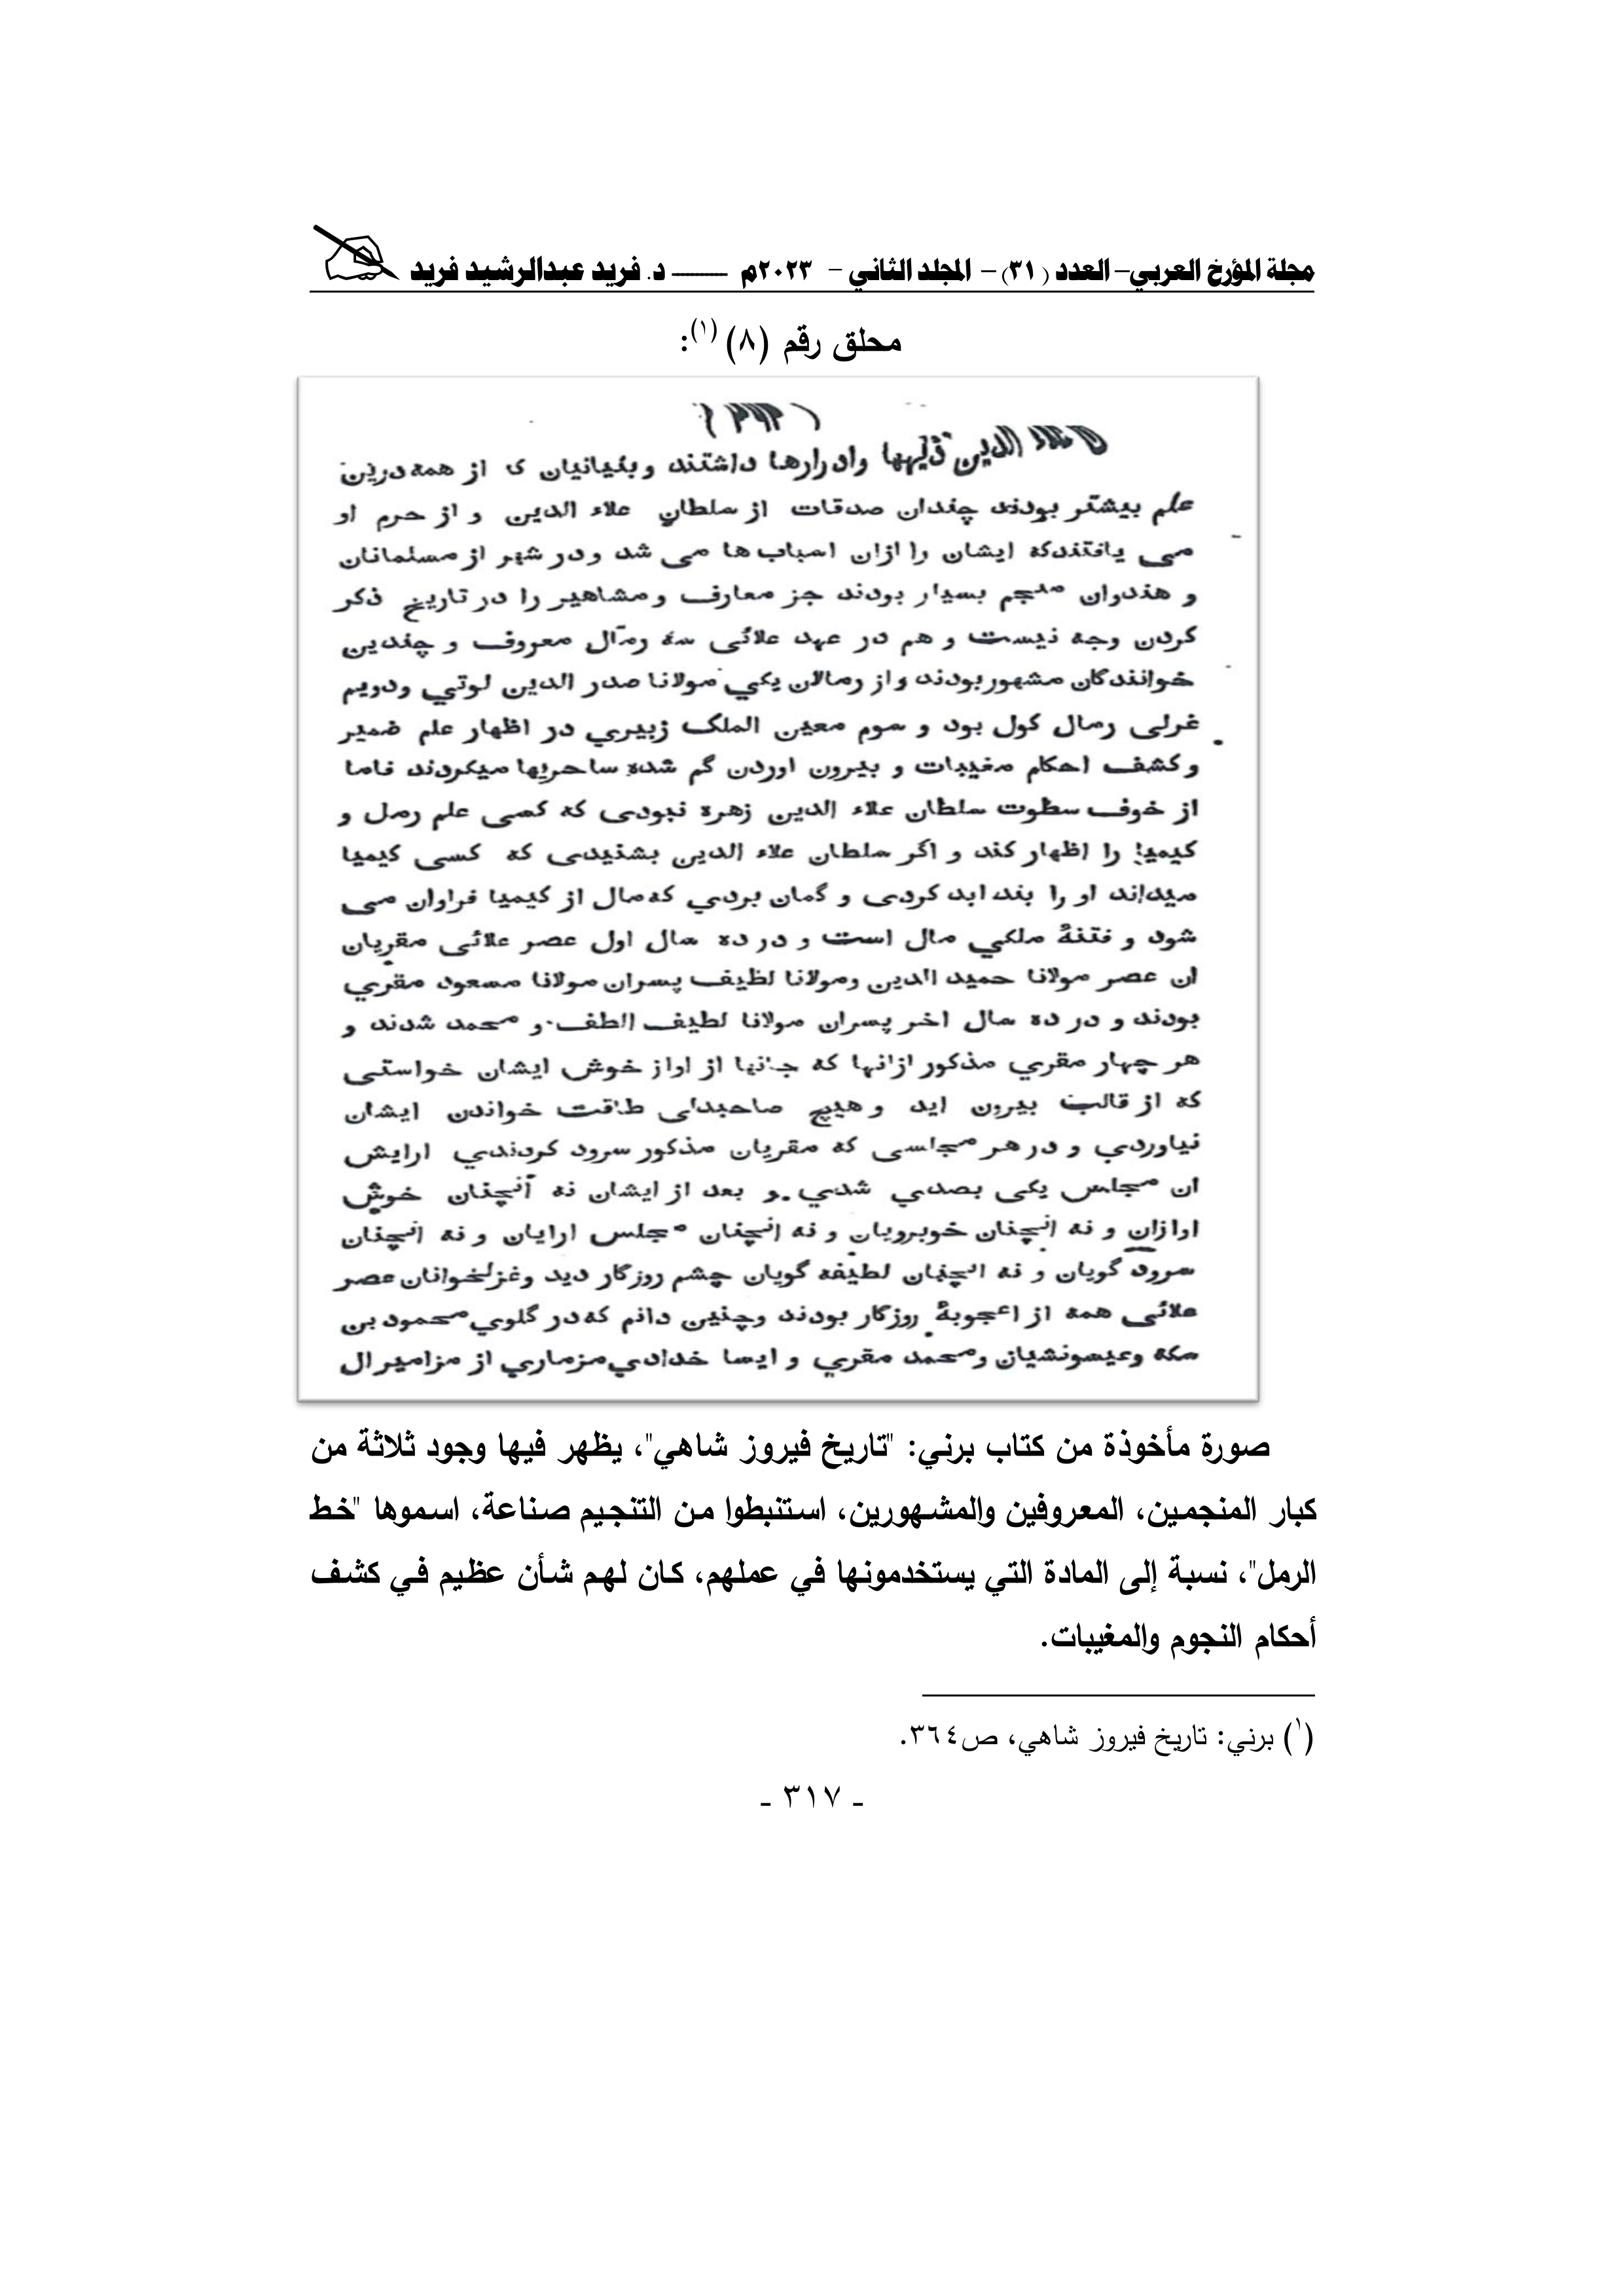 مجلة المؤرخ العربي– العدد (٣١) – المجلد الثاني – ٢٠٢٣م ـــــــــ د. فريد عبدالرشيد فريد
محلق رقم (٨) (١):
الدين ديهها وادرارها داشتند و بنيانيان ك از همه درين
علم بيشتر بودند چندان صدقات از سلطان علاء الدين و از حرم او
مى يافتندكه ايشان را ازان اسباب ها مى شد ودر شهر از مسلمانان
و هندوان منجم بسيار بودند جز معارف ومشاهير را در تاريخ ذكر
كردن وجه نيست و هم در عهد علائى سه رمّال معروف و چندين
خوانندگان مشهوربودند واز رمالان يكي مولانا صدر الدين لوتي ودويم
غرلى رمال كول بود و سوم معين الملك زبيري در اظهار علم ضمير
وكشف احكام مغيبات و بيرون اوردن گم شده ساحريها ميكردند فاما
از خوف سطوت سلطان علاء الدين زهره نبودى كه كسى علم رمل و
كيميا را اظهار كند و اگر سلطان علاء الدين بشنيدى كه كسى كيميا
ميداند او را بند ابد كردى و گمان بردي كه مال از كيميا فراوان مى
شود و فتنهٔ ملكي مال است و در ده سال اول عصر علائى مقريان
ان عصر مولانا حميد الدين ومولانا لطيف پسران مولانا مسعود مقري
بودند و در ده سال اخر پسران مولانا لطيف الطف و محمد شدند و
هر چهار مقري مذكور ازانها كه جانها از اواز خوش ايشان خواستى
كه از قالب بيرون ايد و هيچ صاحبدلى طاقت خواندن ايشان
نياوردي و در هر مجلسى كه مقريان مذكور سرود كردندي ارايش
ان مجلس يكى بصدي شدي و بعد از ايشان نه آنچنان خوش
اوازان و نه انچنان خوبرويان و نه انچنان مجلس ارايان و نه انچنان
سرود گويان و نه انچنان لطيفه گويان چشم روزگار ديد وغزلخوانان عصر
علائى همه از اعجوبهٔ روزگار بودند وچنين دانم كه در گلوي محمود بن
سكه وعيسونشيان ومحمد مقري و ايسا خدادي مزماري از مزامير ال
صورة مأخوذة من كتاب برني: "تاريخ فيروز شاهي"، يظهر فيها وجود ثلاثة من
كبار المنجمين، المعروفين والمشهورين، استنبطوا من التنجيم صناعة، اسموها "خط
الرمل"، نسبة إلى المادة التي يستخدمونها في عملهم، كان لهم شأن عظيم في كشف
أحكام النجوم والمغيبات.
(١) برني: تاريخ فيروز شاهي، ص٣٦٤.
- ٣١٧ -